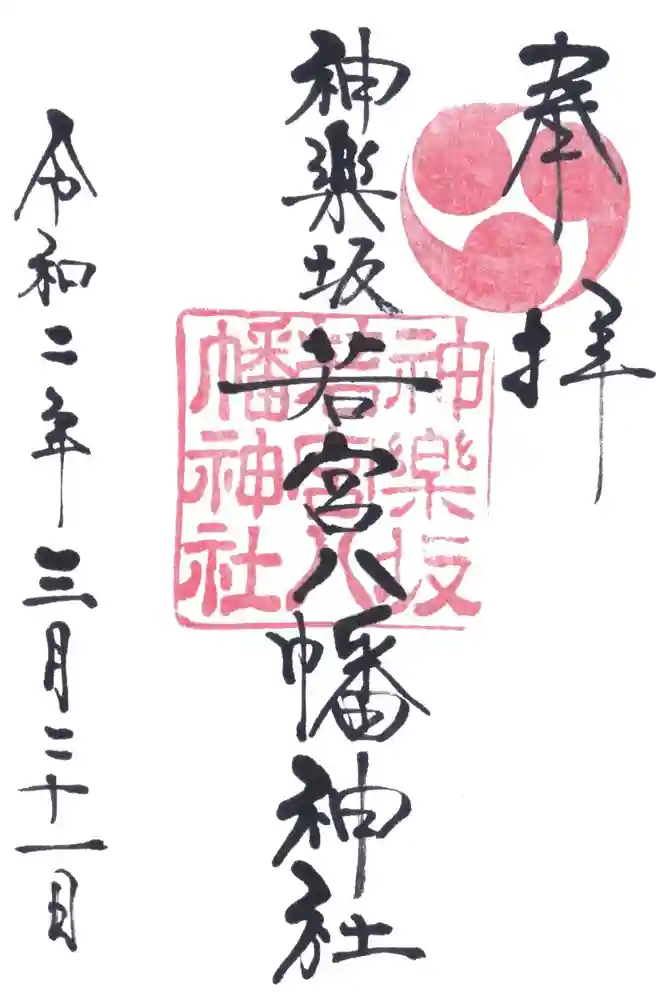 奉拝
神楽坂
若宮八幡神社
神樂坂
若宮八
幡神社
令和二年三月二十一日